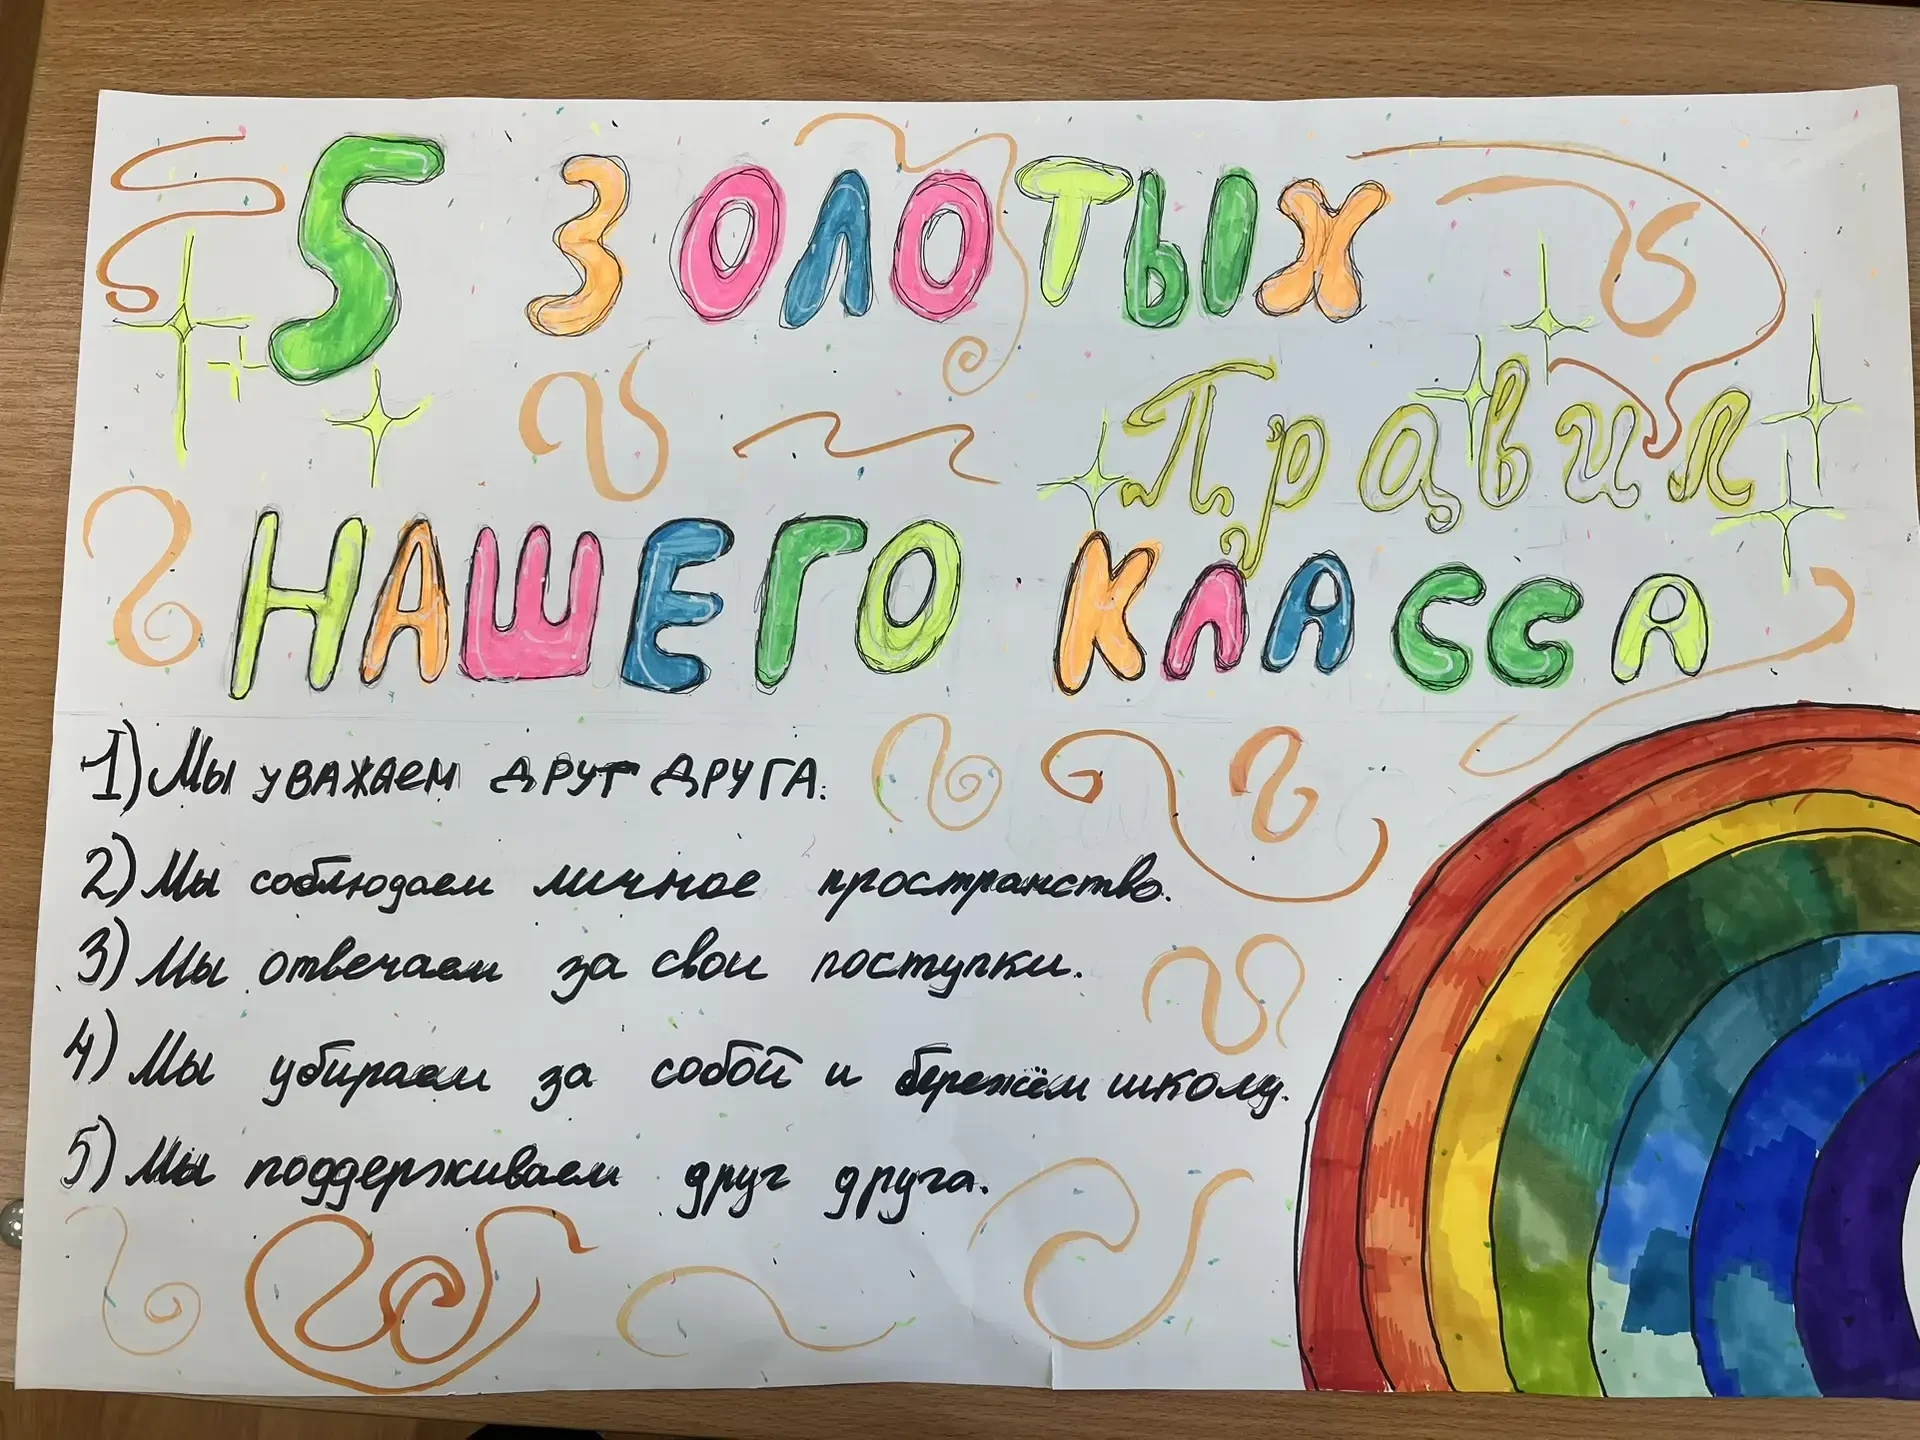 5 ЗОЛОТЫХ
Правил
НАШЕГО КЛАССА
1) Мы уважаем друг друга.
2) Мы соблюдаем личное пространство.
3) Мы отвечаем за свои поступки.
4) Мы убираем за собой и бережём школу.
5) Мы поддерживаем друг друга.